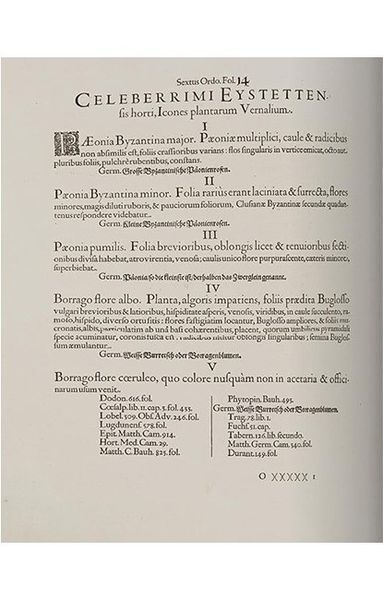 Sextus Ordo. Fol. 14
CELEBERRIMI EYSTETTEN-
sis horti, Icones plantarum Vernalium.
I
PÆonia Byzantina major. Pæoniæ multiplici, caule & radicibus
non absimilis est, foliis crassioribus varians: flos singularis in vertice micat, octo aut
pluribus foliis, pulchrè rubentibus, constans.
Germ. Grosse Byzantinische Päonienrosen.
II
Pæonia Byzantina minor. Folia rariùs erant laciniata & surrecta, flores
minores, magis diluti ruboris, & pauciorum foliorum, Clusianæ Byzantinæ secundæ quadan-
tenus respondere videbatur.
Germ. Kleine Byzantinische Päonienrosen.
III
Pæonia pumilis. Folia brevioribus, oblongis licet & tenuioribus secti-
onibus divisa habebat, atrovirentia, venosa; caulis unico flore purpurascente, cæteris minore,
superbiebat.
Germ. Päonia so die kleinste ist, derhalben das Zwerglein genannt.
IV
Borrago flore albo. Planta, algoris impatiens, foliis prædita Buglosso
vulgari brevioribus & latioribus, hispiditate asperis, venosis, viridibus, in caule succulento, ra-
moso, hispido, diverso ortu sitis: flores fastigiatim locantur, Buglosso ampliores, & foliis mu-
cronatis, albis, particulatim ab unâ basi cohærentibus, placent, quorum umbilicus pyramidali
specie acuminatur, coronis tusca
sum æmulantur.
Germ. Weisse Burretsch oder Borragenblumen.
V
Borrago flore cœruleo, quo colore nusquam non in acetaria & offici-
narum usum venit.
Dodon. 616. fol.
Cæsalp. lib. 11. cap. 5. fol. 433.
Lobel. 309. Obs. Adv. 246. fol.
Lugdunens. 578. fol.
Epit. Matth. Cam. 914.
Hort. Med. Cam. 29.
Matth. C. Bauh. 825. fol.
Phytopin. Bauh. 493.
Germ. Weisse Burretsch oder Borragenblumen.
Trag. 78. lib. 1.
Fuchs. 51. cap.
Tabern. 126. lib. secundo.
Matth. Germ. Cam. 340. fol.
Durant. 149. fol.
O XXXXX 1